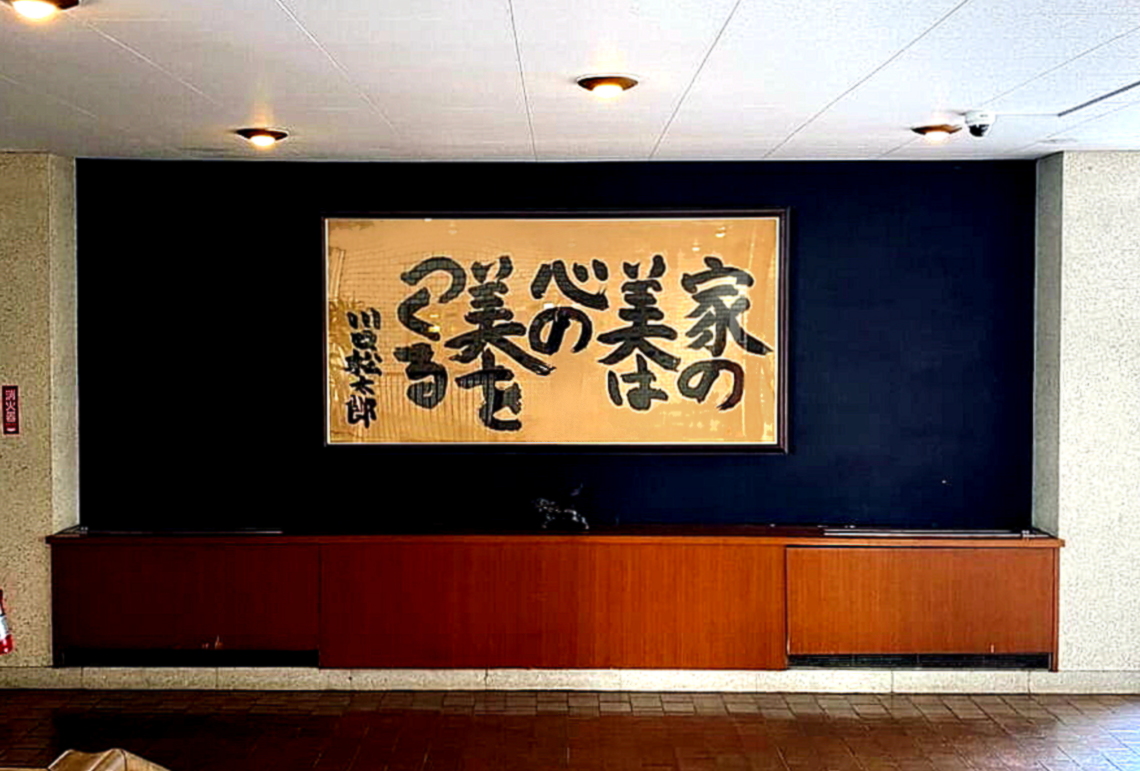 家の
美は
心の
美を
つくる
川口松太郎
消火器